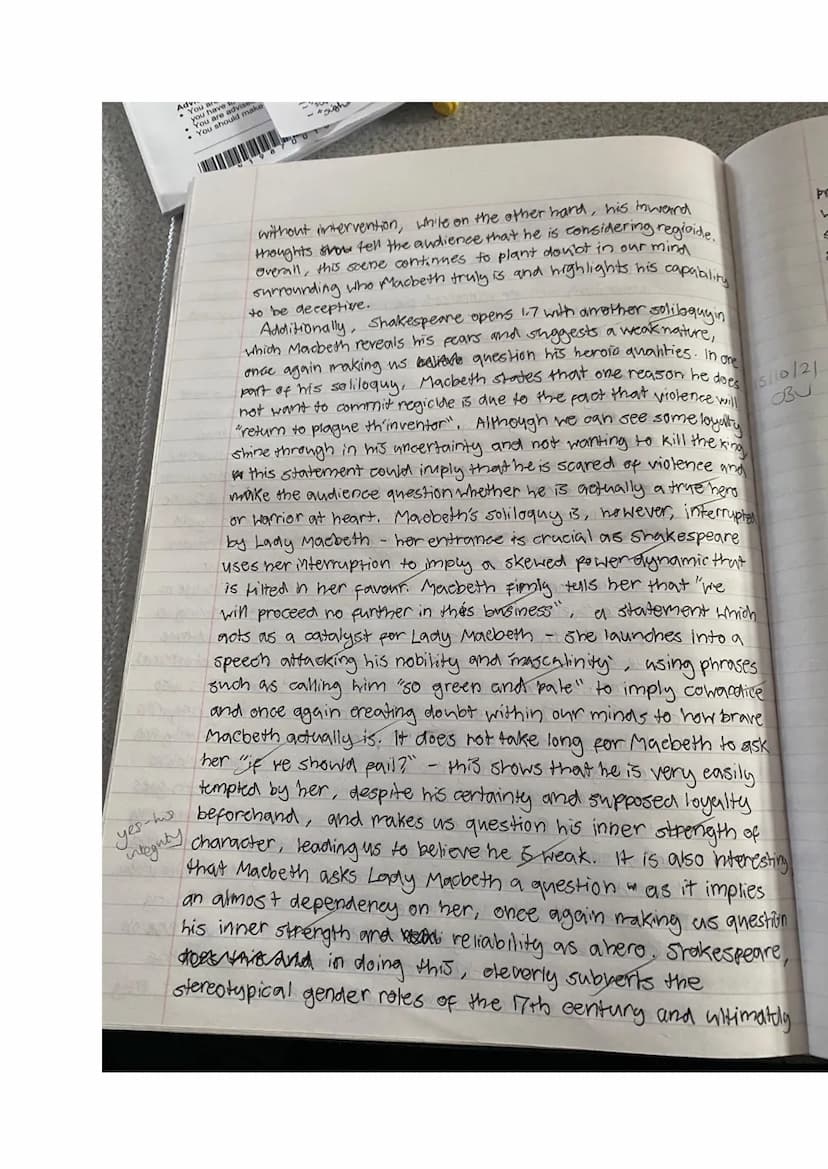 Adv
• You are
you have
• You are advise
• You should make
without intervention, while on the other hand, his inward
thoughts tell the audience that he is considering regicide.
Overall, this scene continues to plant doubt in our mind
surrounding who Macbeth truly is and highlights his capability
to be deceptive.
Additionally, Shakespeare opens 1.7 with another soliloquy in
which Macbeth reveals his fears and suggests a weak nature,
once again making us question his heroic qualities. In one
part of his soliloquy, Macbeth states that one reason he does
not want to commit regicide is due to the fact that violence will
"return to plague th'inventor". Although we can see some loyalty
shine through in his uncertainty and not wanting to kill the king
this statement could imply that he is scared of violence and
make the audience question whether he is actually a true hero
or warrior at heart. Macbeth's soliloquy is, however, interrupted
by Lady Macbeth - her entrance is crucial as Shakespeare
uses her interruption to imply a skewed power dynamic that
is tilted in her favour. Macbeth firmly tells her that "we
will proceed no further in this business", a statement which
acts as a catalyst for Lady Macbeth - she launches into a
speech attacking his nobility and 'masculinity', using phrases
such as calling him "so green and pale" to imply cowardice
and once again creating doubt within our minds to how brave
Macbeth actually is. It does not take long for Macbeth to ask
her "if we should fail?" - this shows that he is very easily
tempted by her, despite his certainty and supposed loyalty
beforehand, and makes us question his inner strength of
character, leading us to believe he is weak. It is also interesting
that Macbeth asks Lady Macbeth a question as it implies
an almost dependency on her, once again making us question
his inner strength and reliability as a hero. Shakespeare,
in doing this, cleverly subverts the
stereotypical gender roles of the 17th century and ultimately
yes - his
integrity
5/10/21